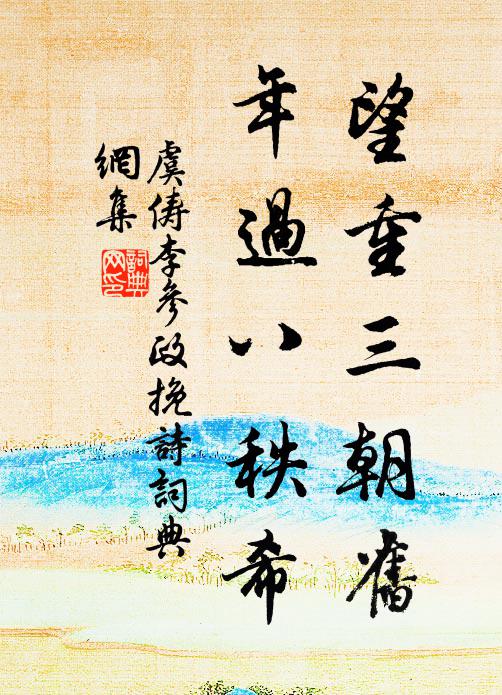 望重三朝舊
年過八秩希
虞儔李參政挽詩詞典
網集
詞典
网印